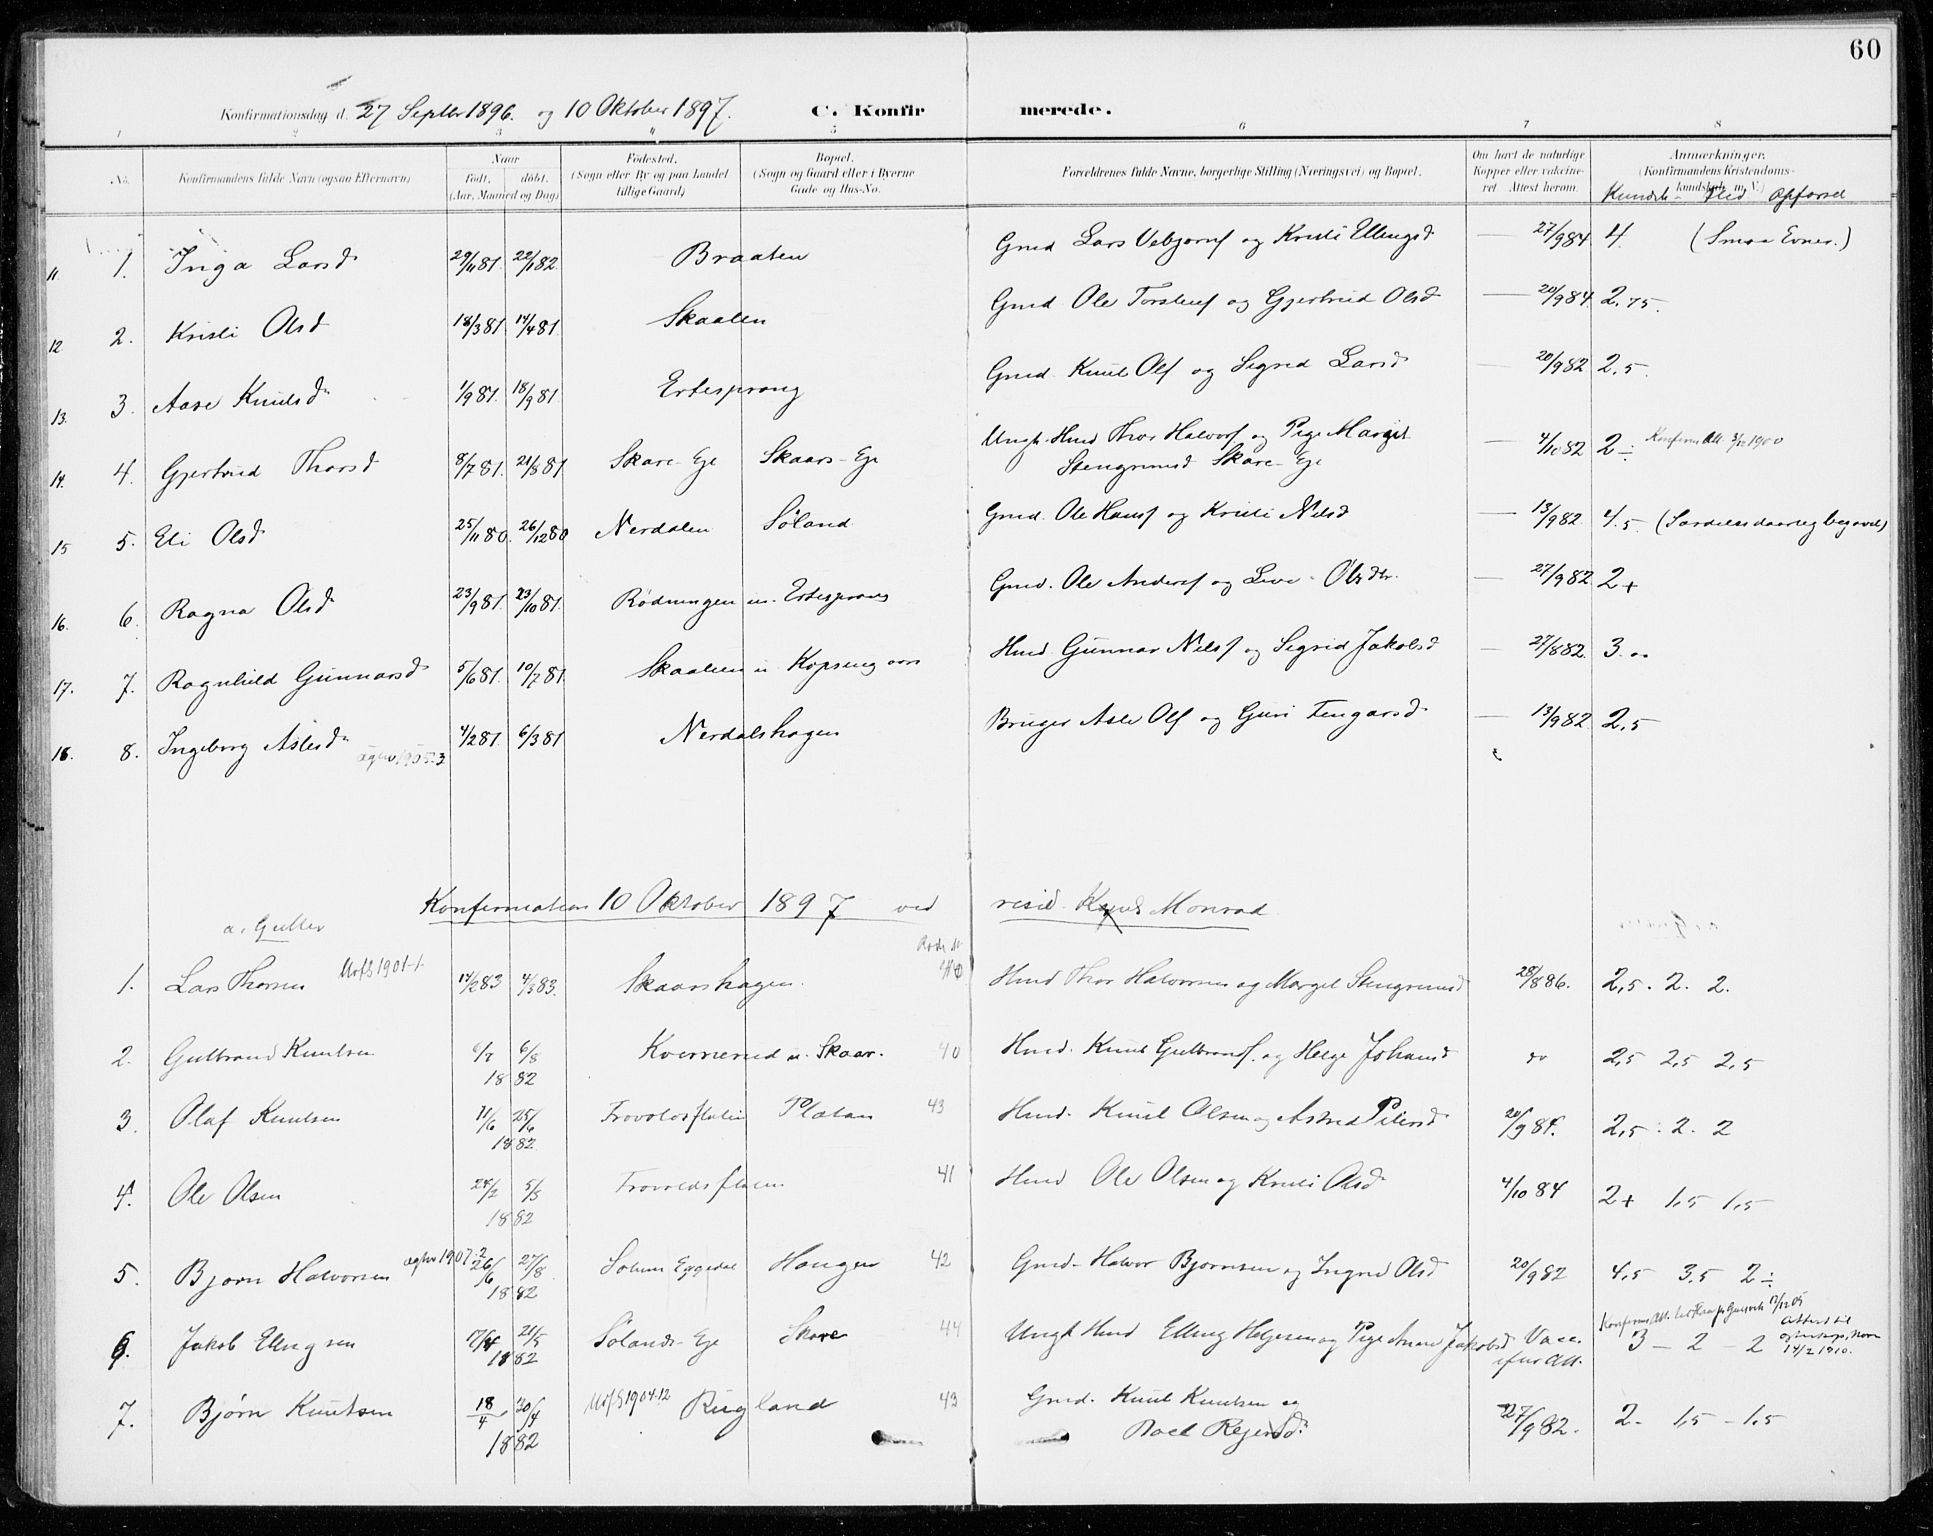 60
Konfirmationsdag d. 27 Septbr 1896. og 10 Oktober 1897. C. Konfirmerede.
1 2 3 4 5 6 7 8
No. Konfirmandens fulde Navn (ogsaa Efternavn) Naar født. døbt. (Aar, Maaned og Dag) Fødested. (Sogn eller By og paa Landet tillige Gaard) Bopæl. (Sogn og Gaard eller i Byerne Gade og Hus-No. Forældrenes fulde Navne, borgerlige Stilling (Næringsvei) og Bopæl. Om havt de naturlige Kopper eller vakcineret. Attest herom. Anmærkninger. (Konfirmandens Kristendomskundskab m. V.)
Kundsk - Flid Opførsel
11 1. Inga Larsd 29/11 81 22/1 82. Braaten Gmd Lars Vebjørns og Kristi Ellingsd — 27/9 84 4. (Smaa Evner.)
12 2. Kristi Olsd 18/3 81 14/4 81. Skaalen Gmd Ole Torstens og Gjertrud Olsd — 20/9 84 2.75.
13. 3. Aase Knudsd 1/9 81. 18/9 81 Ertesprang Gmd. Knut Ols og Sigrid Larsd — 20/9 82 2,5.
14. 4. Gjertrud Thorsd 8/7 81. 21/8 81 Skare-Eje Skaars-Eje Ungk. Hmd Thor Halvors og Pige Margit Stengrimsd Skare-Eje — 4/10 82 2 ÷ Konfirm Att. 3/12 1900
15 5. Eli Olsd 25/11 80. 26/12 80 Nerdalen Søland Gmd. Ole Hans og Kristi Nilsd — 13/9 82. 4.5. (Særdeles daarlig begavet)
16. 6. Ragna Olsd 23/9 81. 23/10 81. Rødningen u. Ertesprang Gmd. Ole Anders og Live Olsdtr. — 27/9 82 2+
17. 7. Ragnhild Gunnarsd 5/6 81. 10/7 81. Skaalen u. Kopseng Hmd. Gunnar Nils og Sigrid Jakobsd — 27/8 82. 3.
18. 8. Ingeborg Aslesd 4/2 81. 6/3 81 Nerdalshagen Bruger Asle Ols og Guri Tengarsd — 13/9 82. 2,5
Konfirmation 10 Oktober 1897 ved resid. Monrad
a. Gutter
1. Lars Thorsen Utfl 1901-1. 14/2 83 4/3 83. Skaarshagen. 40 Hmd Thor Halvorsen og Margit Stengrimsd 28/8 86. 2,5. 2. 2.
2. Gulbrand Knutsen 6/7 6/8 1882 Kvernerud u. Skaar. 40 Hmd. Knut Gulbrands. og Helge Johansd do 2,5 2,5 2,5
3. Olaf Knutsen 11/6 25/6 1882 Frovoldsflaten Platan 43 Hmd. Knut Olsen og Astrid Petersd 20/9 84. 2,5. 2. 2
4. Ole Olsen 24/2 5/3 1882 Frovoldsflaten 41 Hmd Ole Olsen og Kristi Olsd 4/10 84 2+ 1,5 1,5
5. Bjørn Halvorsen 1907-2 26/6 27/8 1882 Solum Eggedal Haugen 42 Gmd. Halvor Bjørnsen og Ingrid Olsd 20/9 82 4,5 3,5 2÷
6. Jakob Ellingsen 17/4 21/5 1882 Sølands-Eje Skare 44 Ungk Hmd Elling Helgesen og Pige Anne Jakobsd Vacc. ifør Att. 3 — 2 — 2 Attest til 14/2 1910.
7. Bjørn Knutsen 18/4 30/4 1882 Utfl 1904.12 Rugland 43 Gmd. Knut Knutsen og Boel Rejersd. 27/9 82. 2- 1,5 - 1,5